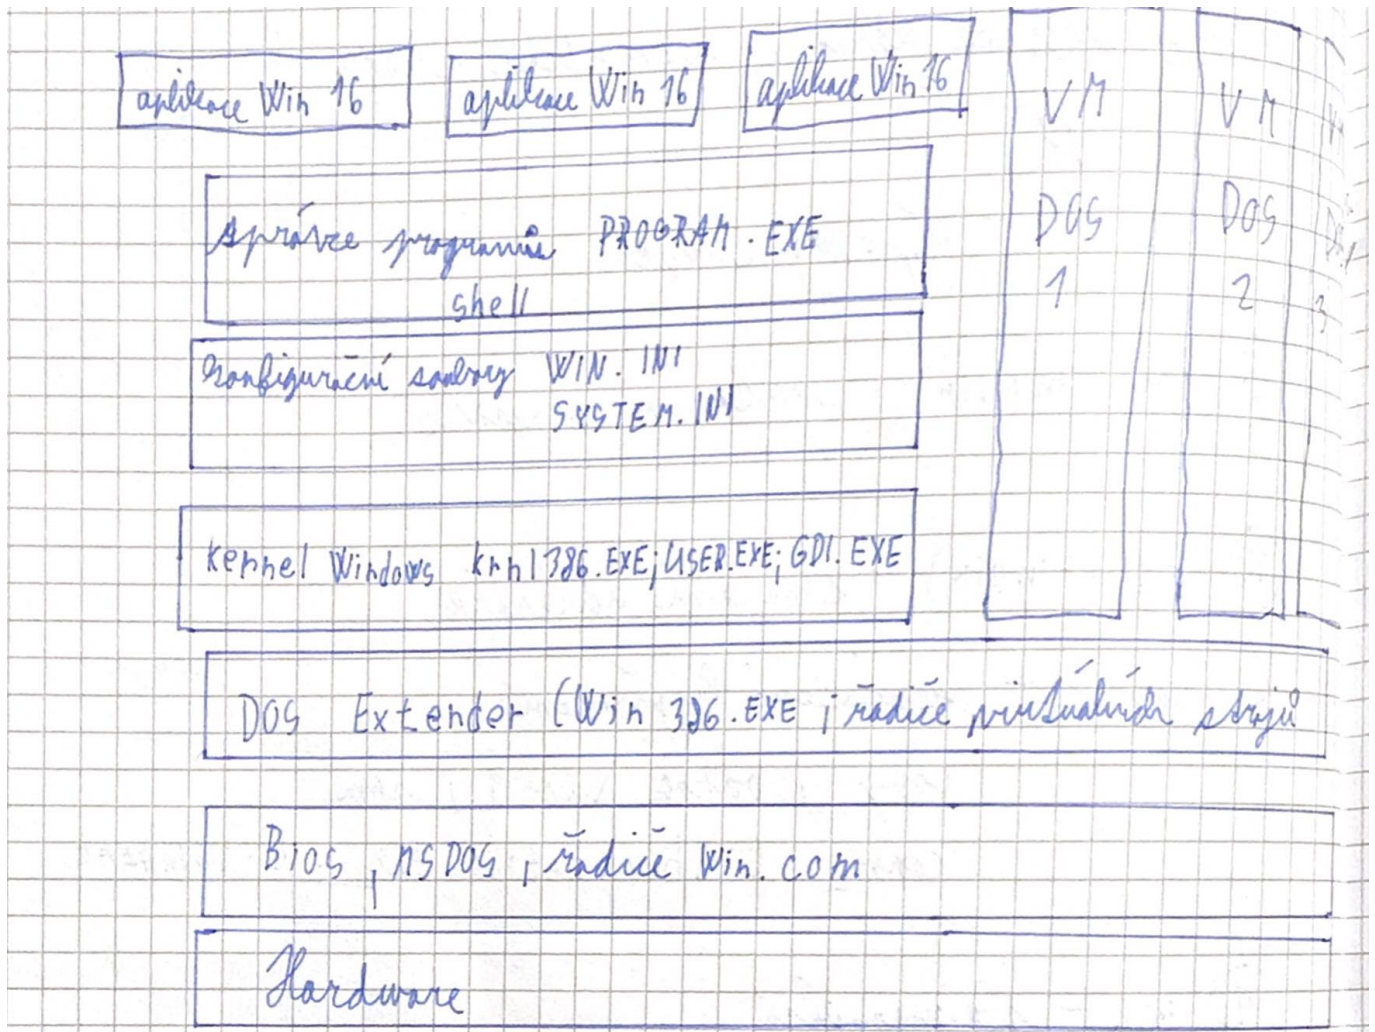 aplikace Win 16
aplikace Win 16
aplikace Win 16
VM
DOS
1
VM
DOS
2
3
správce programů PROGRAM.EXE
shell
Konfigurační soubory WIN.INI
SYSTEM.INI
Kernel Windows krnl386.EXE; USER.EXE; GDI.EXE
DOS Extender (Win 386.EXE ; řadiče virtuálních strojů
Bios, MSDOS, řadiče Win.com
Hardware